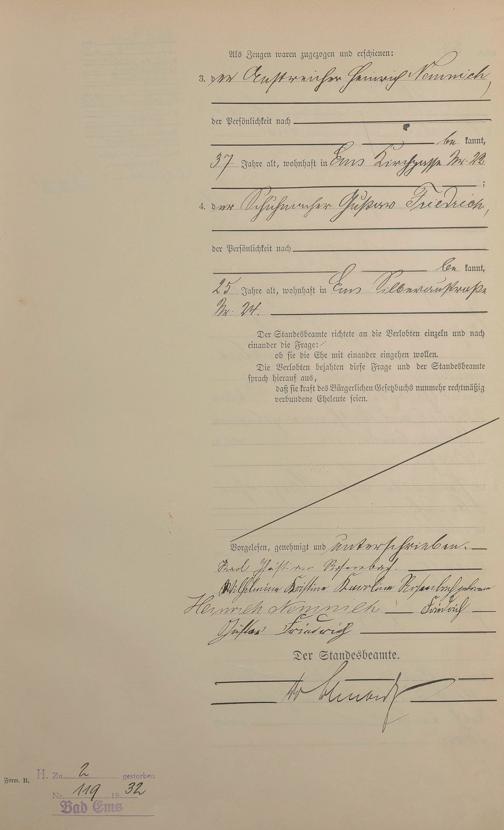 Als Zeugen waren zugezogen und erschienen:
3. der Anstreicher Heinrich Nemnich,
der Persönlichkeit nach
be kannt,
37 Jahre alt, wohnhaft in Ems Kirchgasse Nr. 23
;
4. der Schuhmacher Gustav Friedrich,
der Persönlichkeit nach
be kannt,
25 Jahre alt, wohnhaft in Ems Silberaustraße
Nr. 24.
Der Standesbeamte richtete an die Verlobten einzeln und nach
einander die Frage:
ob sie die Ehe mit einander eingehen wollen.
Die Verlobten bejahten diese Frage und der Standesbeamte
sprach hierauf aus,
daß sie kraft des Bürgerlichen Gesetzbuchs nunmehr rechtmäßig
verbundene Eheleute seien.
Vorgelesen, genehmigt und unterschrieben.
Rosenbach.
Wilhelmine Karoline Rosenbach geborene
Heinrich Nemnich Friedrich
Gustav Friedrich
Der Standesbeamte.
Form. B.
H. Zu 2 gestorben
Nr. 119 19 32
Bad Ems